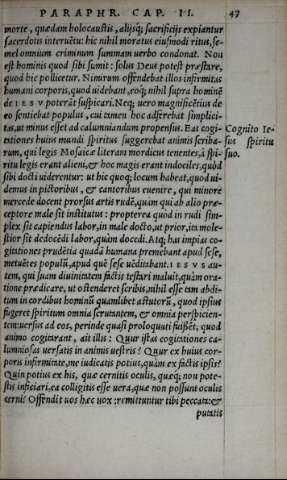 PARAPHR. CAP. II. 47
morte, quædam holocaustis, alijsq; sacrificijs expiantur
sacerdotis interuētu: hic nihil moratus eiusmodi ritus, se-
mel omnium criminum summam uerbo condonat. Non
est hominis quod sibi sumit: solus Deus potest præstare,
quod hic pollicetur. Nimirum offendebat illos infirmitas
humani corporis, quod uidebant, eoq; nihil supra hominē
de IESV poterāt suspicari. Neq; uero magnificētius de
eo sentiebat populus, cui tamen hoc adferebat simplici-
tas, ut minus esset ad calumniandum propensus. Eas cogi-
tationes huius mundi spiritus suggerebat animis scriba-
rum, qui legis Mosaicæ literam mordicus tenentes, à spi-
ritu legis erant alieni, & hoc magis erant indociles, quòd
sibi docti uiderentur: ut hic quoq; locum habeat, quod ui-
demus in pictoribus, & cantoribus euenire, qui minore
mercede docent prorsus artis rudē, quàm qui ab alio præ-
ceptore male sit institutus: propterea quod in rudi sim-
plex sit capiendus labor, in male docto, ut prior, ita mole-
stior sit dedocēdi labor, quàm docēdi. Atq; has impias co-
gitationes prudētia quadā humana premebant apud sese,
metuētes populū, apud quē sese uēditabant. IESVS au-
tem, qui suam diuinitatem factis testari maluit, quàm ora-
tione prædicare, ut ostenderet scribis, nihil esse tam abdi-
tum in cordibus hominū quamlibet astutorū, quod ipsius
fugeret spiritum omnia scrutantem, & omnia perspicien-
tem: uersus ad eos, perinde quasi proloquuti fuissēt, quod
animo cogitarant, ait illis: Quur istas cogitationes ca-
lumniosas uersatis in animis uestris? Quur ex huius cor-
poris infirmitate, me iudicatis potius, quàm ex factis ipsis?
Quin potius ex his, quæ cernitis oculis, quæq; non pote-
stis inficiari, ea colligitis esse uera, quæ non possunt oculis
cerni? Offendit uos hæc uox: remittuntur tibi peccata: &
putatis
Cognito Ie-
sus spiritu
suo.